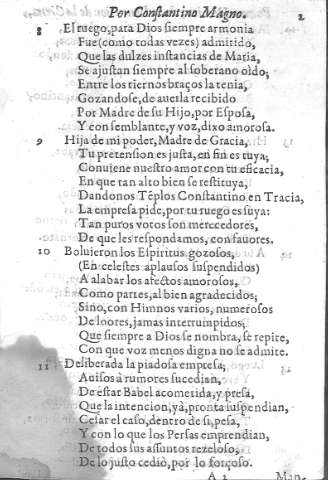 Por Constantino Magno. 2
8 El ruego, para Dios siempre armonia
Fue (como todas vezes) admitido,
Que las dulzes instancias de Maria,
Se ajustan siempre al soberano oido;
Entre los tiernos braços la tenia,
Gozandose, de auerla recibido
Por Madre de su Hijo, por Esposa,
Y con semblante, y voz, dixo amorosa.
9 Hija de mi poder, Madre de Gracia,
Tu pretension es justa, en fin es tuya;
Conuiene nuestro amor con tu eficacia,
En que tan alto bien se restituya,
Dandonos Tẽplos Constantino en Tracia,
La empresa pide, por tu ruego es suya:
Tan puros votos son merecedores,
De que les respondamos, con fauores.
10 Boluieron los Espiritus gozosos,
(En celestes aplausos suspendidos)
A alabar los afectos amorosos,
Como partes, al bien agradecidos;
Sino, con Himnos varios, numerosos
De loores, jamas interrumpidos,
Que siempre a Dios se nombra, se repite,
Con que voz menos digna no se admite.
11 Deliberada la piadosa empresa;
Auisos à rumores sucedian,
De estar Babel acometida, y presa,
Que la intencion, yà, pronta suspendian,
Cesar el caso, dentro de si, pesa,
Y con lo que los Persas emprendian,
De todos sus assuntos rezeloso,
De lo justo cediò, por lo forçoso.
A 2 Man-